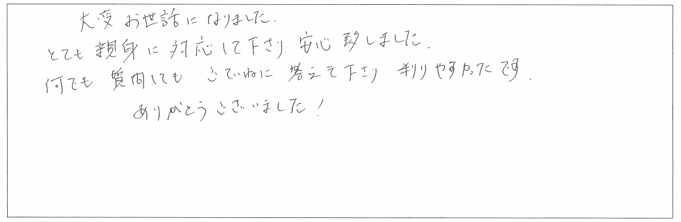 大変お世話になりました.
とても親身に対応して下さり安心致しました.
何でも質問してもていねいに答えて下さり判りやすかったです.
ありがとうございました!